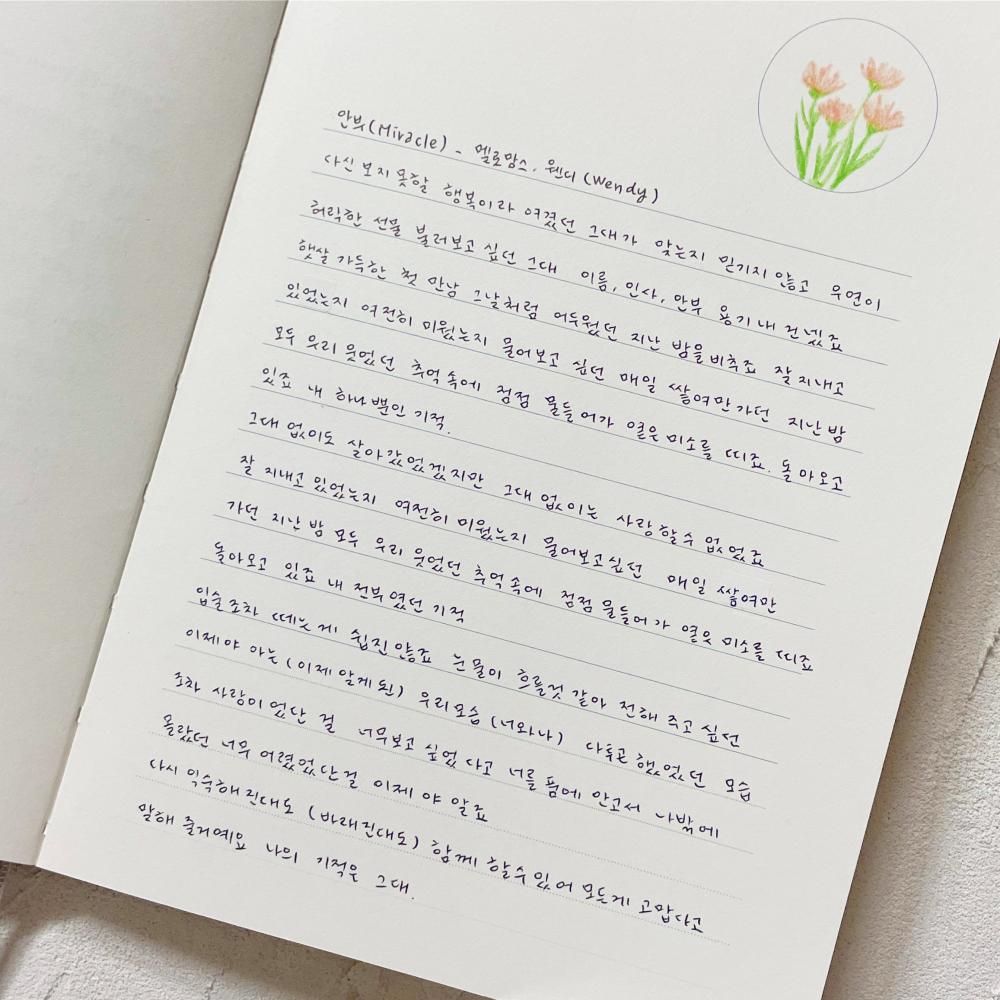 안부(Miracle) - 멜로망스, 웬디(Wendy)
다신 보지 못할 행복이라 여겼던 그대가 맞는지 믿기지 않고 우연이
허락한 선물 불러보고 싶던 그대 이름, 인사, 안부 용기내 건넸죠
햇살 가득한 첫 만남 그날처럼 어두웠던 지난 밤을 비추죠 잘 지내고
있었는지 여전히 미웠는지 물어보고 싶던 매일 쌓여만 가던 지난 밤
모두 우리 웃었던 추억 속에 점점 물들어가 옅은 미소를 띠죠. 돌아오고
있죠 내 하나뿐인 기적.
그대 없이도 살아갔었겠지만 그대 없이는 사랑할 수 없었죠
잘 지내고 있었는지 여전히 미웠는지 물어보고싶던 매일 쌓여만
가던 지난 밤 모두 우리 웃었던 추억 속에 점점 물들어가 옅은 미소를 띠죠
돌아오고 있죠 내 전부였던 기적
입술조차 떼는게 쉽진않죠 눈물이 흐를것 같아 전해 주고 싶던
이제야 아는 (이제 알게 된) 우리 모습 (너와 나) 다투곤 했었던 모습
조차 사랑이었단 걸 너무 보고 싶었다고 너를 품에 안고서 나밖에
몰랐던 너무 어렸었단걸 이제야 알죠
다시 익숙해진대도 (바래진대도) 함께 할수있어 모든게 고맙다고
말해 줄거예요 나의 기적은 그대.